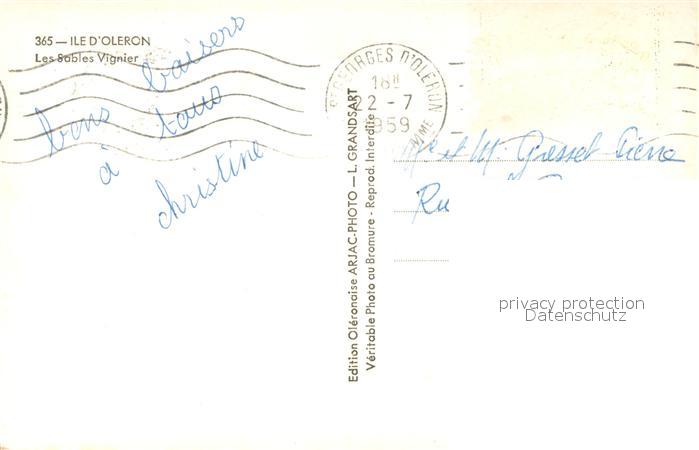 365 — ILE D'OLERON
Les Sables Vignier
bons baisers
à tous
christine
GEORGES D'OLERON
18H
22 - 7
1959
Edition Oléronaise ARJAC-PHOTO — L. GRANDSART
Véritable Photo au Bromure - Reprod. Interdite
Me et M. Gresset Pierre
Ru
privacy protection
Datenschutz